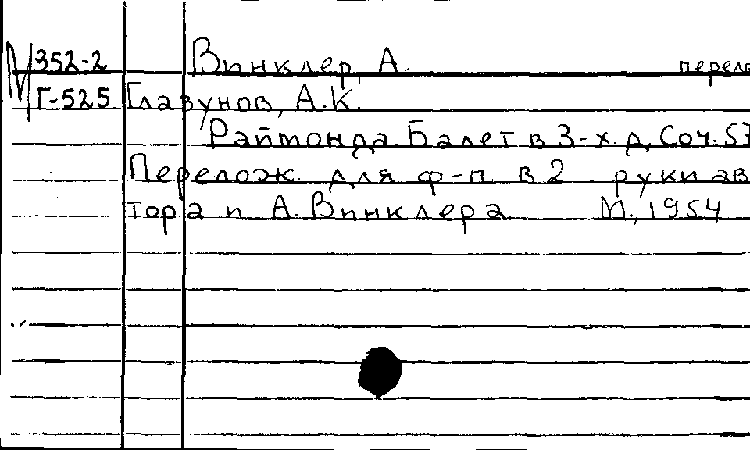 М 352-2 Винклер, А. перело
Г-525 Глазунов, А.К.
Раймонда. Балет в 3-х д. Соч. 57
Перелож. для ф-п. в 2 руки ав
тора и А. Винклера М., 1954